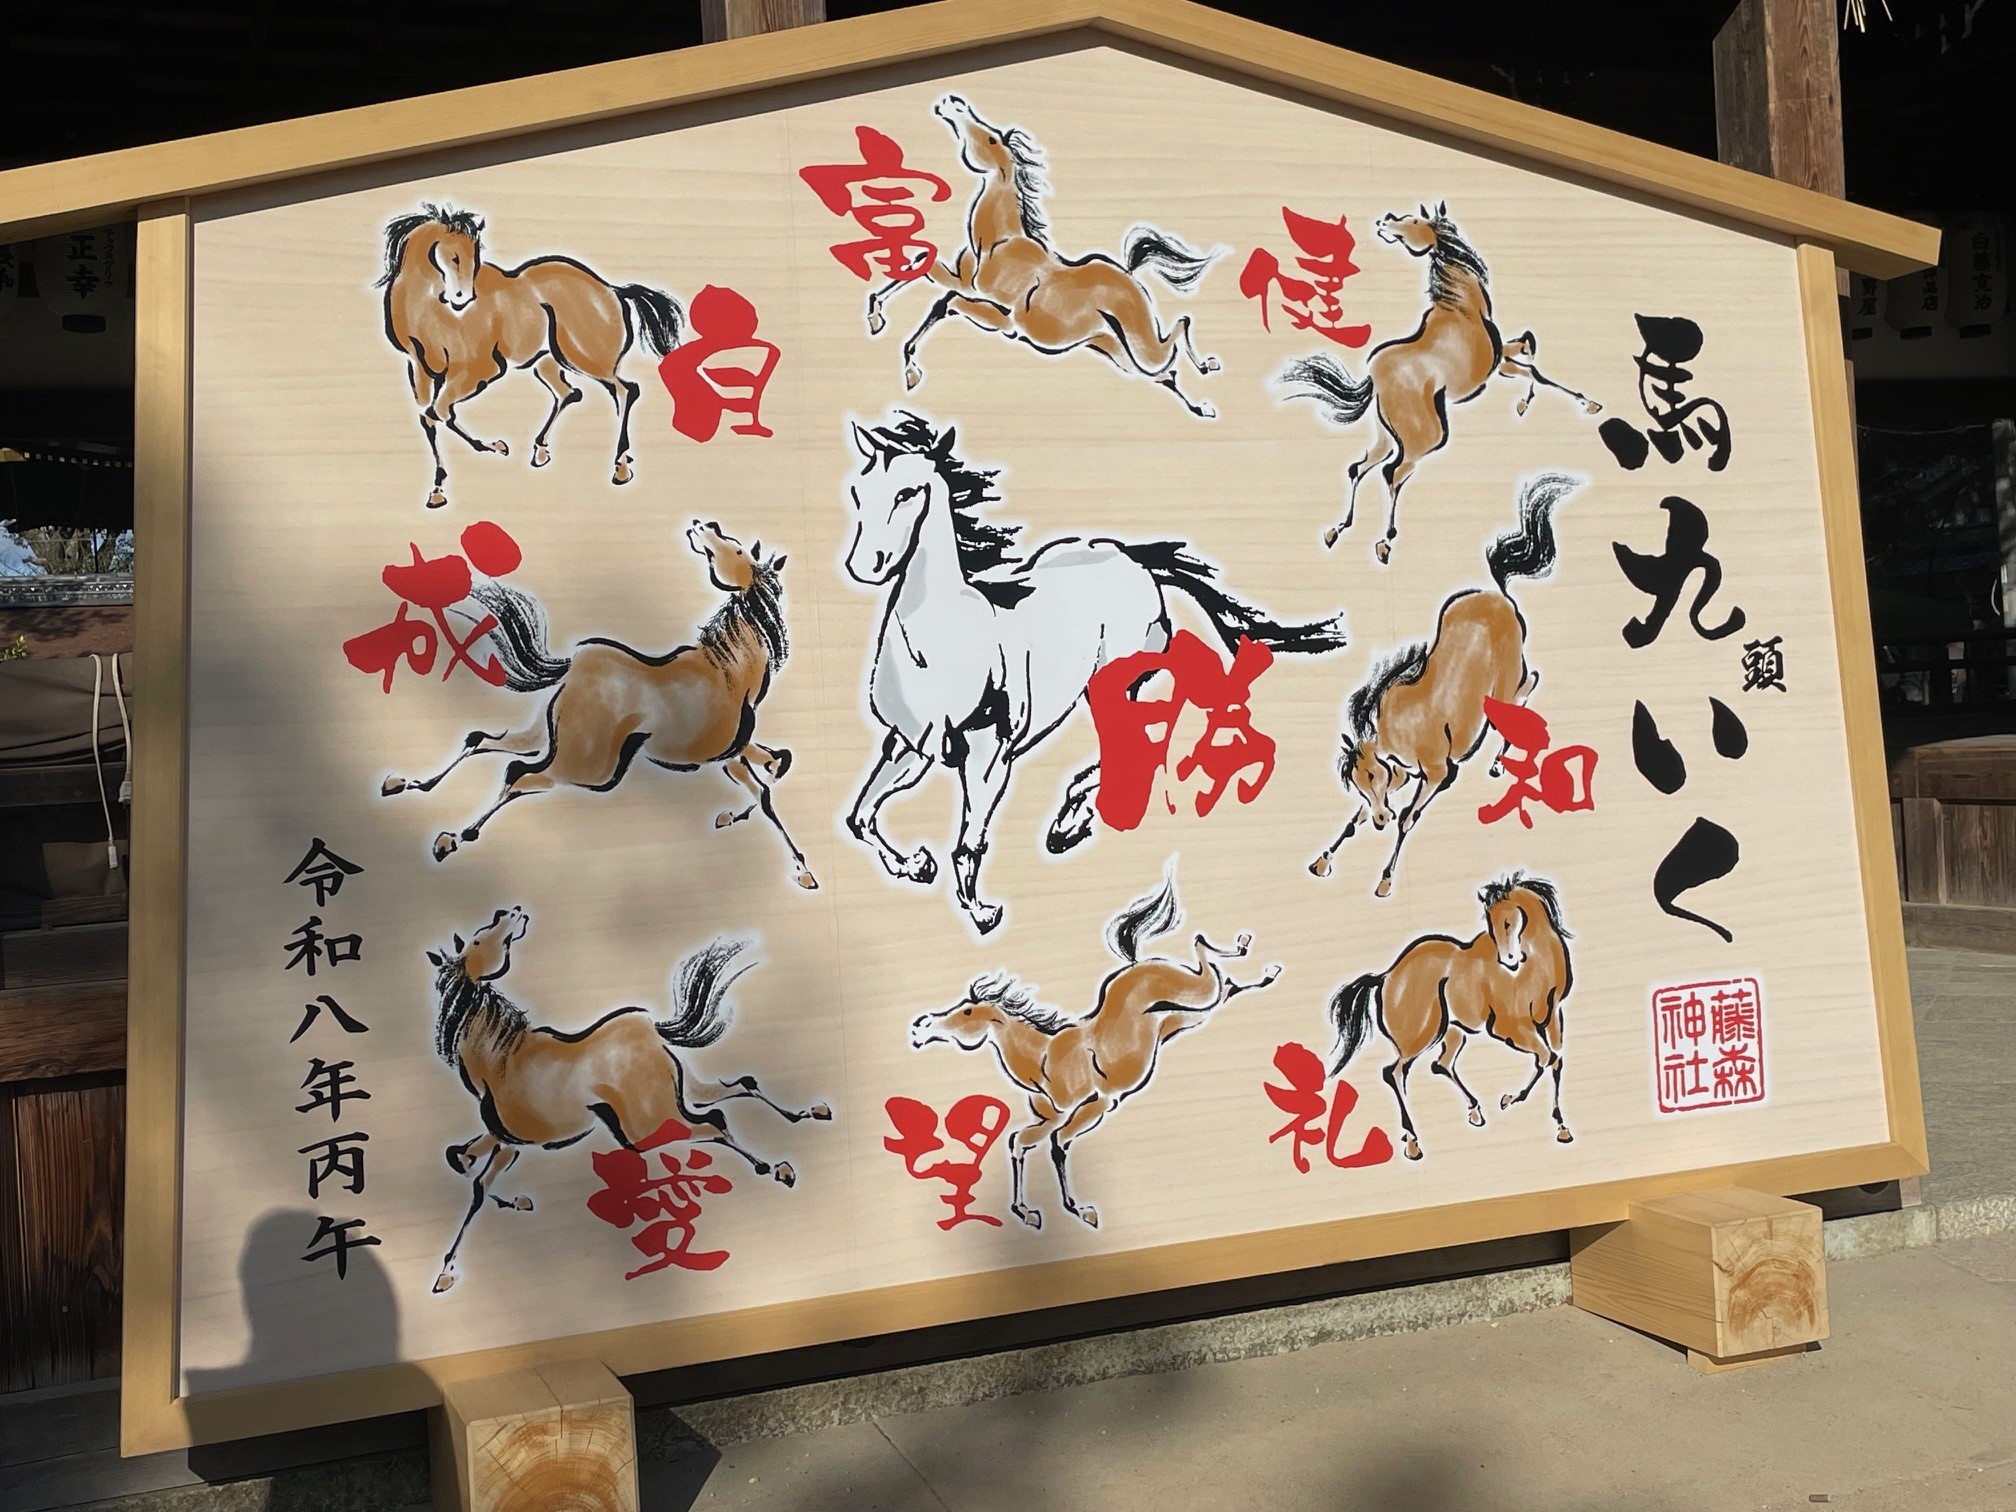 馬九頭いく
藤森
神社
健
富
和
勝
成
礼
望
愛
令和八年丙午
正幸